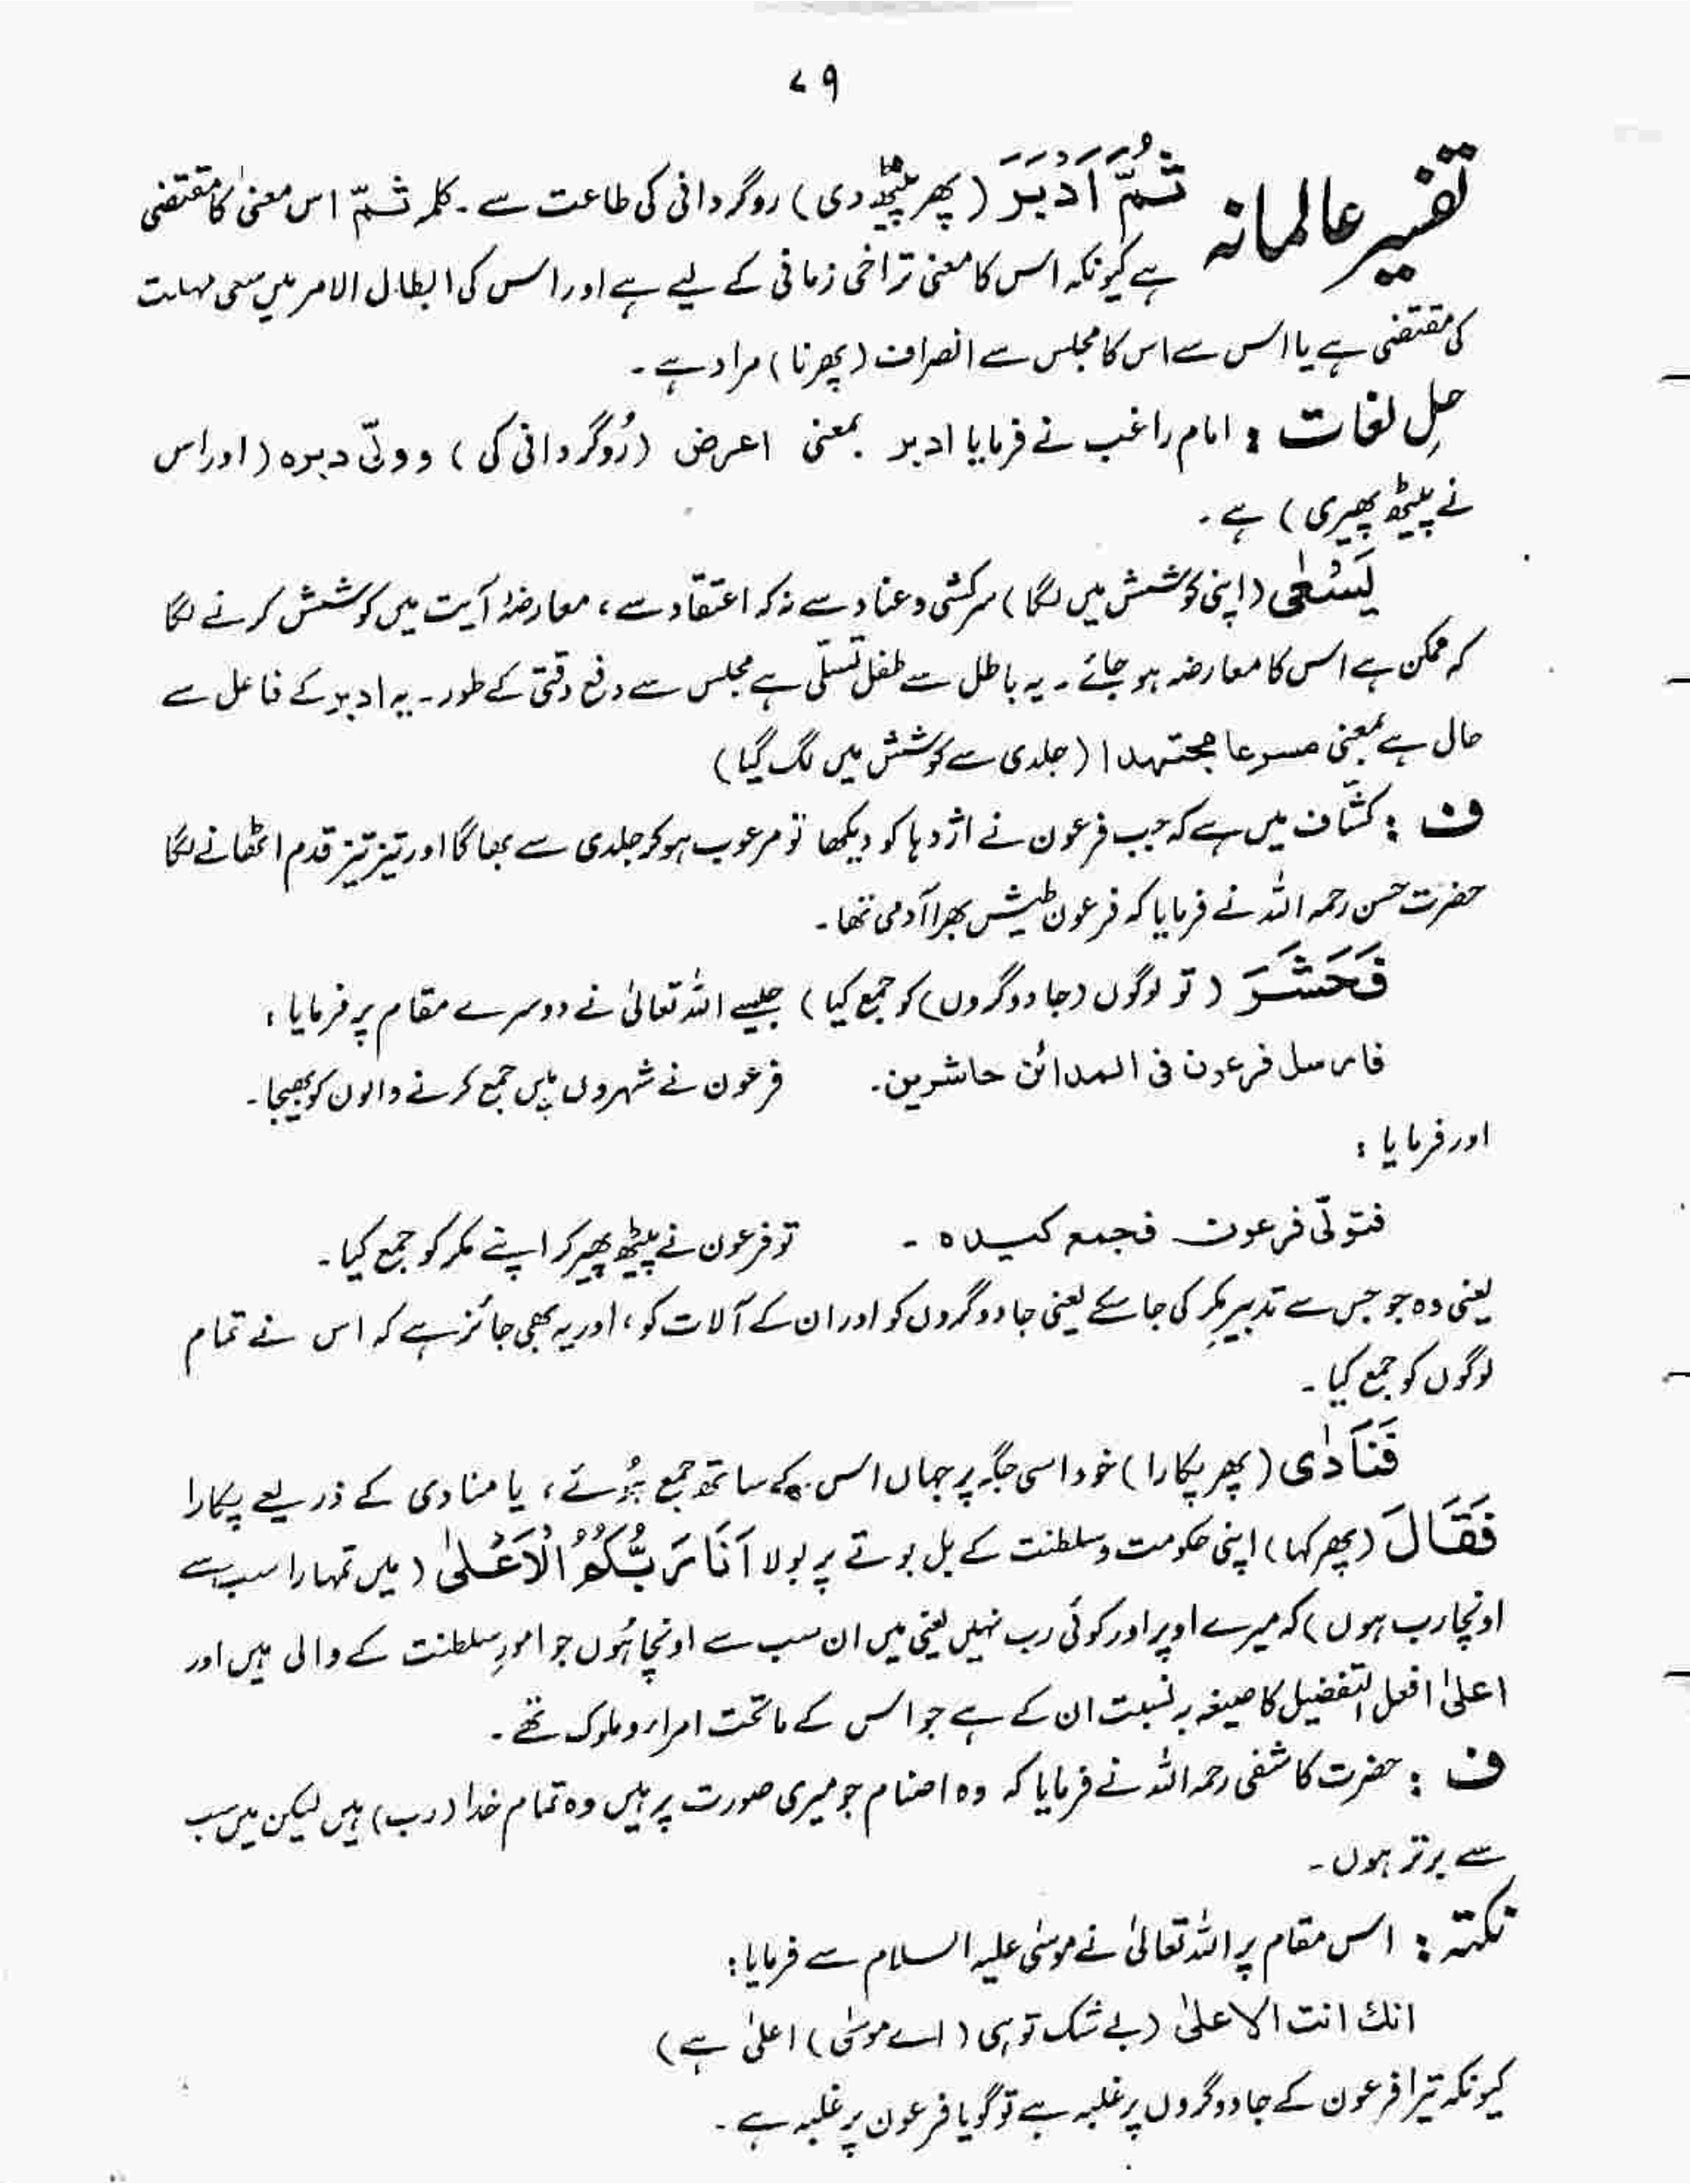 ۷۹
تفسیر عالمانہ ثُمَّ اَدْبَرَ (پھر پیٹھ دی) روگردانی کی طاعت سے۔ کلمہ ثمّ اس معنیٰ کا مقتضی
ہے کیونکہ اس کا معنی تراخی زمانی کے لیے ہے اور اس کی ابطال الامر میں سعی مہلت
کی مقتضی ہے یا اس سے اس کا مجلس سے انصراف (پھرنا) مراد ہے۔
حلِ لغات : امام راغب نے فرمایا ادبر بمعنی اعرض (رُوگردانی کی) و ولّٰی دبرہ (اور اس
نے پیٹھ پھیری) ہے۔
یَسْعٰی (اپنی کوشش میں لگا) سرکشی و عناد سے نہ کہ اعتقاد سے، معارضۂ آیت میں کوشش کرنے لگا
کہ ممکن ہے اس کا معارضہ ہو جائے۔ یہ باطل سے طفل تسلّی ہے مجلس سے دفع وقتی کے طور۔ یہ ادبر کے فاعل سے
حال ہے بمعنی مسرعا مجتہدا (جلدی سے کوشش میں لگ گیا)
ف : کشّاف میں ہے کہ جب فرعون نے اژدہا کو دیکھا تو مرعوب ہو کر جلدی سے بھاگا اور تیز تیز قدم اٹھانے لگا
حضرت حسن رحمہ اللہ نے فرمایا کہ فرعون طیش بھرا آدمی تھا۔
فَحَشَرَ (تو لوگوں (جادوگروں) کو جمع کیا) جیسے اللہ تعالیٰ نے دوسرے مقام پر فرمایا :
فارسل فرعون فی المدائن حاشرین۔ فرعون نے شہروں میں جمع کرنے والوں کو بھیجا۔
اور فرمایا :
فتولّٰی فرعون فجمع کیدہ ۔ تو فرعون نے پیٹھ پھیر کر اپنے مکر کو جمع کیا۔
یعنی وہ جو جس سے تدبیر مکر کی جا سکے یعنی جادوگروں کو اور ان کے آلات کو، اور یہ بھی جائز ہے کہ اس نے تمام
لوگوں کو جمع کیا۔
فَنَادٰی (پھر پکارا) خود اسی جگہ پر جہاں اس کے ساتھ جمع ہُوئے، یا منادی کے ذریعے پکارا
فَقَالَ (پھر کہا) اپنی حکومت و سلطنت کے بل بوتے پر بولا اَنَا رَبُّکُمُ الْاَعْلٰی (میں تمہارا سب سے
اونچا رب ہوں) کہ میرے اوپر اور کوئی رب نہیں یعنی میں ان سب سے اونچا ہُوں جو امورِ سلطنت کے والی ہیں اور
اعلیٰ افعل التفضیل کا صیغہ بہ نسبت ان کے ہے جو اس کے ماتحت امراء و ملوک تھے۔
ف : حضرت کاشفی رحمہ اللہ نے فرمایا کہ وہ اصنام جو میری صورت پر ہیں وہ تمام خدا (رب) ہیں لیکن میں سب
سے برتر ہوں۔
نکتہ : اس مقام پر اللہ تعالیٰ نے موسٰی علیہ السلام سے فرمایا :
انك انت الاعلیٰ (بے شک تو ہی (اے موسٰی) اعلیٰ ہے)
کیونکہ تیرا فرعون کے جادوگروں پر غلبہ ہے تو گویا فرعون پر غلبہ ہے۔